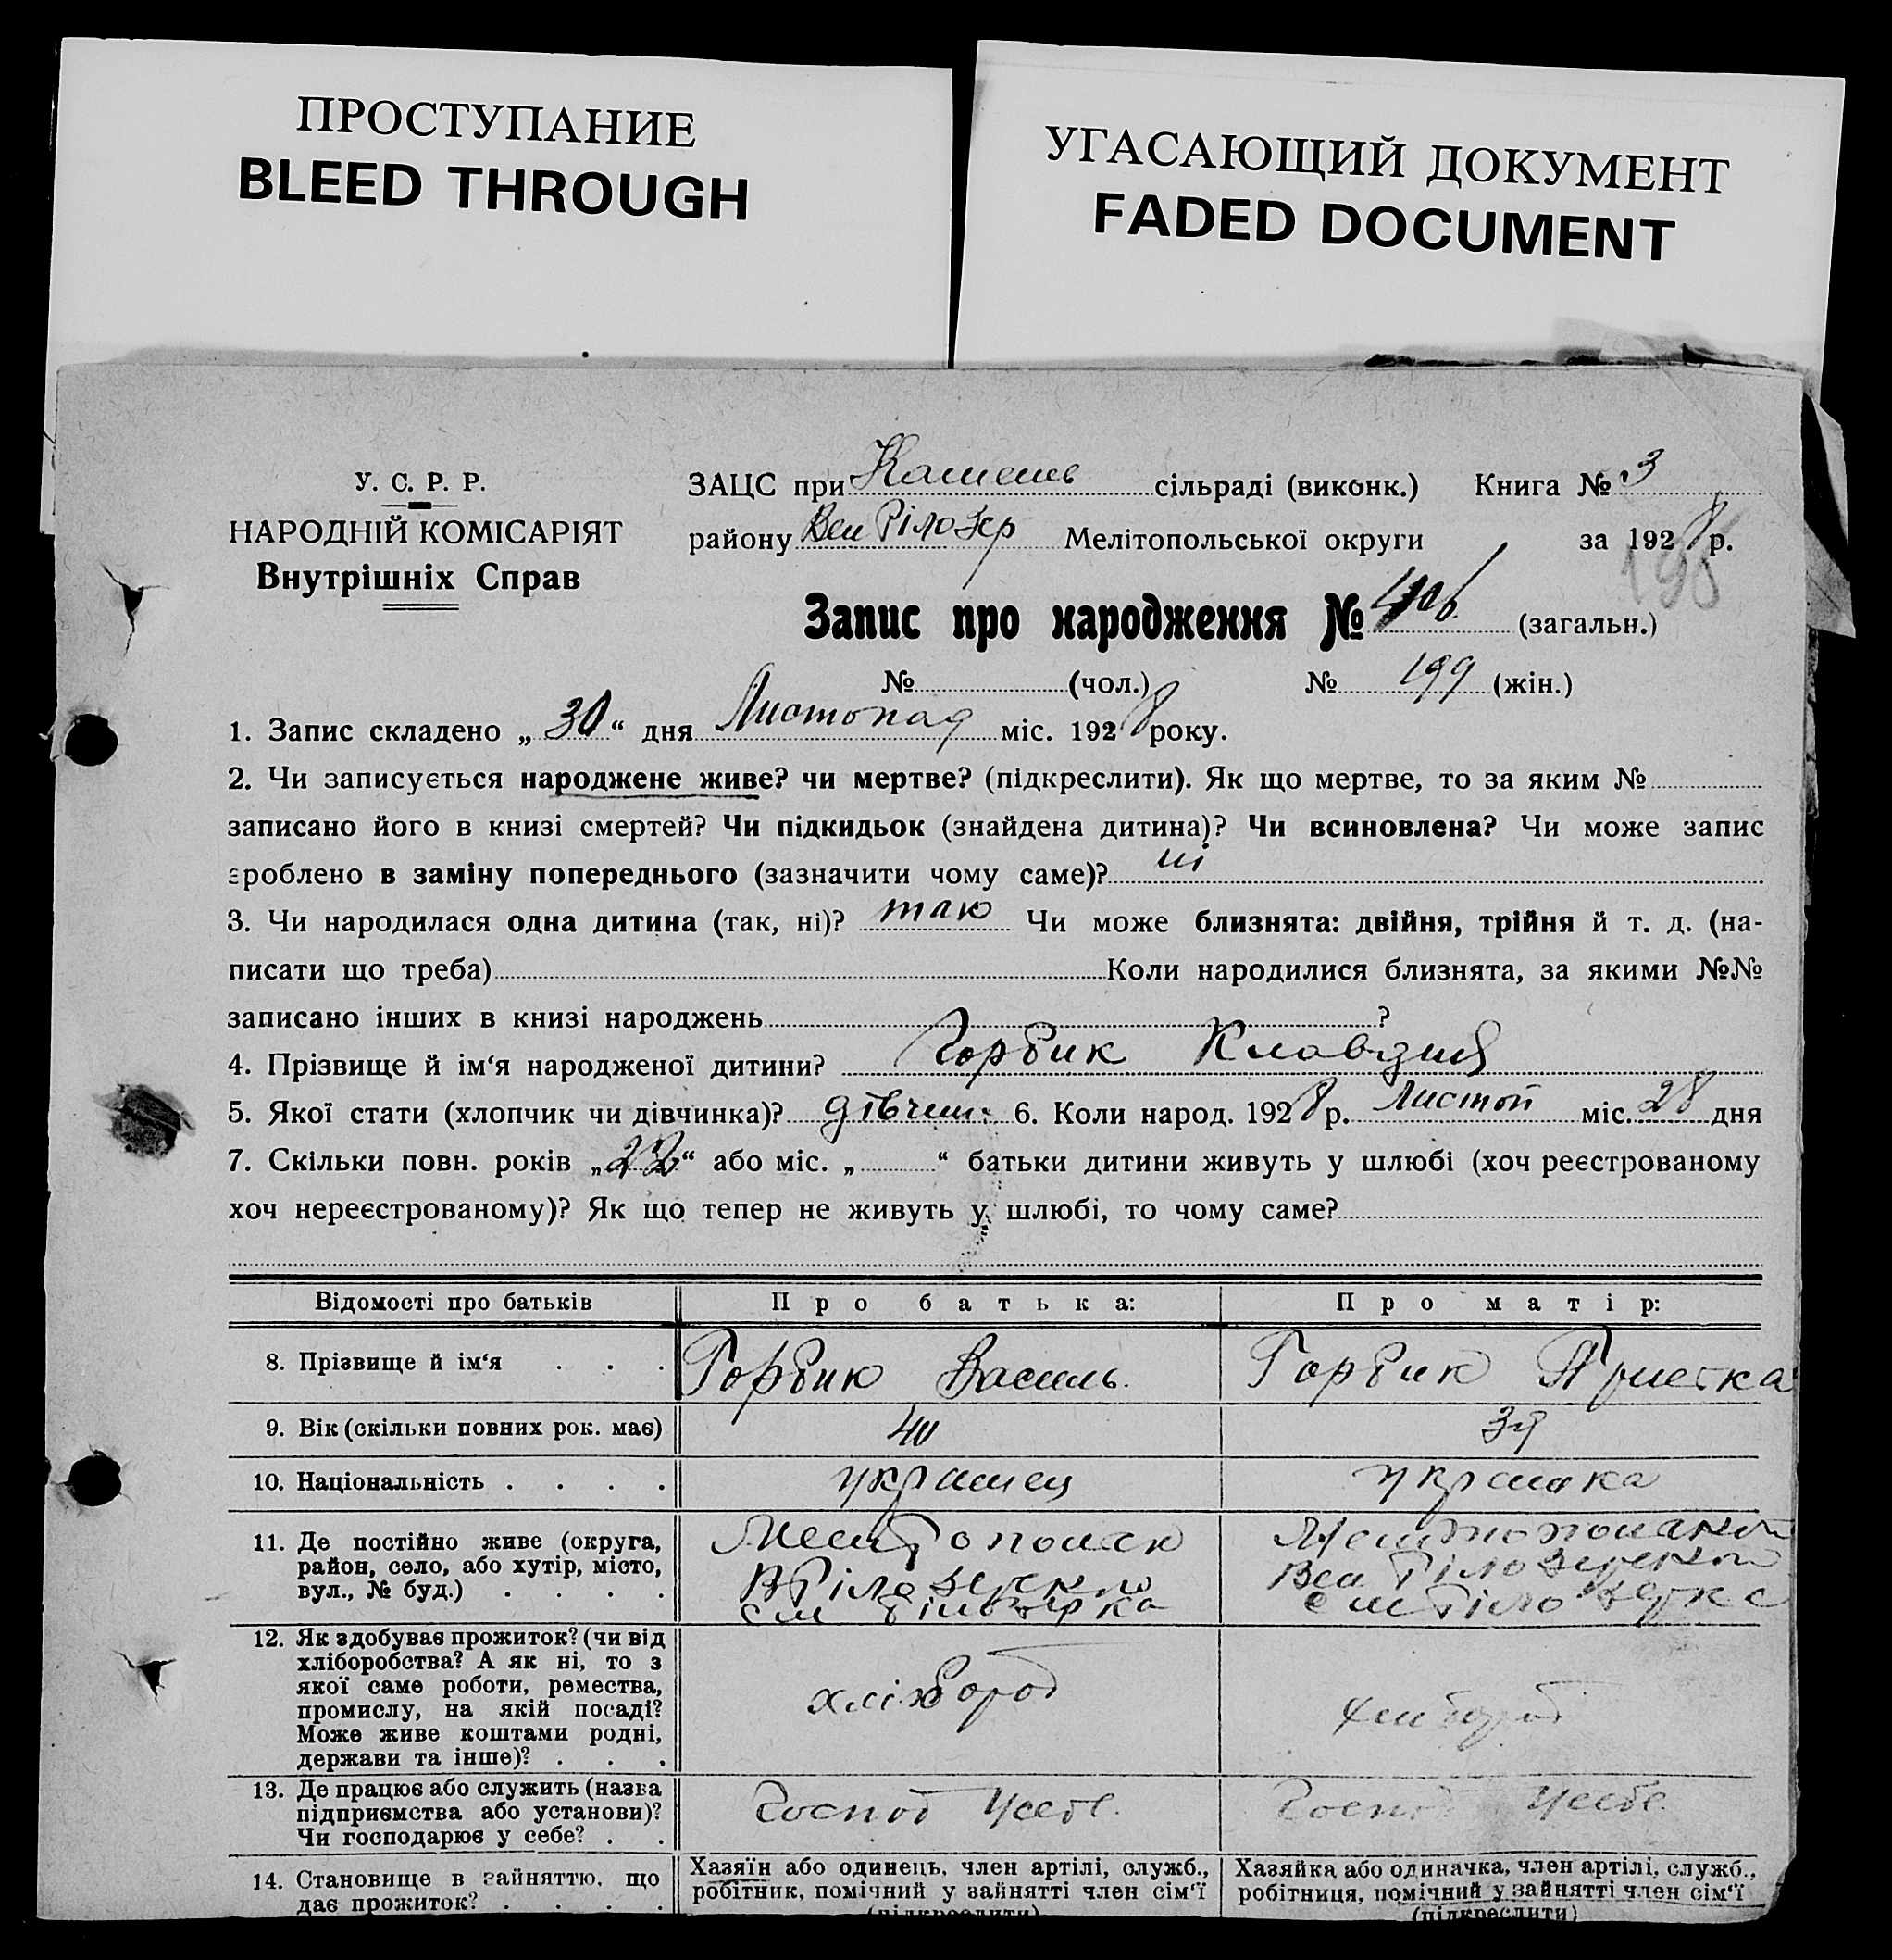 ПРОСТУПАНИЕ
BLEED THROUGH
УГАСАЮЩИЙ ДОКУМЕНТ
FADED DOCUMENT
У. С. Р. Р.
НАРОДНІЙ КОМІСАРІЯТ
Внутрішніх Справ
ЗАЦС при сільраді (виконк.) Книга № 3
району Вел Білозер Мелітопольської округи за 1928 р.
198
Запис про народження № 406 (загальн.)
№ (чол.) № 199 (жін.)
1. Запис складено „30“ дня Листопад міс. 1928 року.
2. Чи записується народжене живе? чи мертве? (підкреслити). Як що мертве, то за яким №
записано його в книзі смертей? Чи підкидьок (знайдена дитина)? Чи всиновлена? Чи може запис
зроблено в заміну попереднього (зазначити чому саме)? ні
3. Чи народилася одна дитина (так, ні)? так Чи може близнята: двійня, трійня й т. д. (на-
писати що треба) Коли народилися близнята, за якими №№
записано інших в книзі народжень ?
4. Прізвище й ім‘я народженої дитини? Горбик Клавдия
5. Якої стати (хлопчик чи дівчинка)? дівчин. 6. Коли народ. 1928 р. Листоп міс. 28 дня
7. Скільки повн. років „22“ або міс. „ “ батьки дитини живуть у шлюбі (хоч реєстрованому
хоч нереєстрованому)? Як що тепер не живуть у шлюбі, то чому саме?
Відомості про батьків Про батька: Про матір:
8. Прізвище й ім‘я . . . Горбик Василь. Горбик
9. Вік (скільки повних рок. має) 40 39
10. Національність . . . . украинец украинка
11. Де постійно живе (округа,
район, село, або хутір, місто,
вул., № буд.) . . . .
Мелітопольск
В Білозерки
см Білозерка
Мелітопольской
Вел Білозерской
см Білозерка
12. Як здобуває прожиток? (чи від
хліборобства? А як ні, то з
якої саме роботи, ремества,
промислу, на якій посаді?
Може живе коштами родні,
держави та інше)? . . .
хлібороб
хлібороб
13. Де працює або служить (назва
підприємства або установи)?
Чи господарює у себе? . .
Господ у себе.
Господ у себе.
14. Становище в зайняттю, що
дає прожиток? . . . .
Хазяїн або одинець, член артілі, служб.,
робітник, помічний у зайнятті член сім‘ї
(підкреслити)
Хазяйка або одиначка, член артілі, служб.,
робітниця, помічний у зайнятті член сім‘ї
(підкреслити)